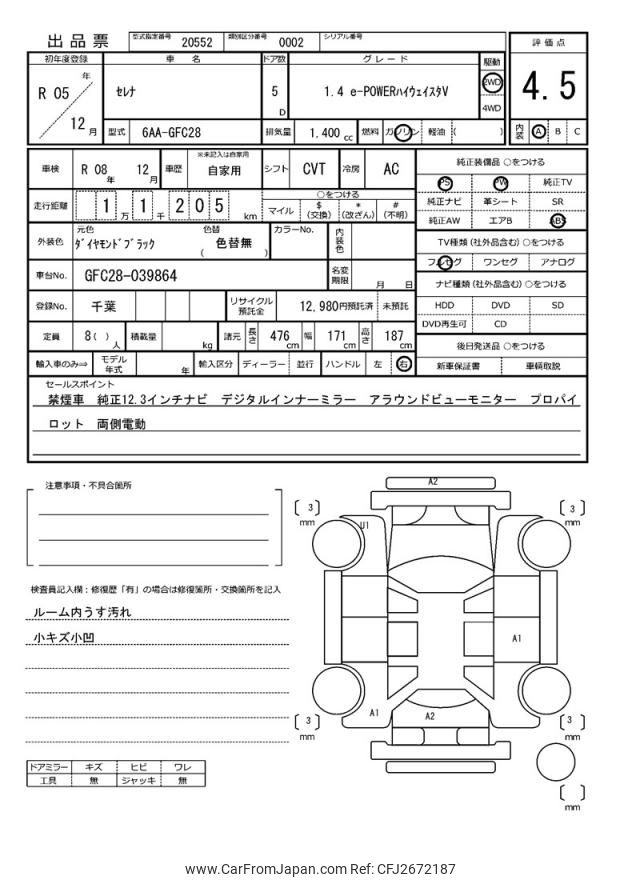 出品票 型式指定番号 20552 類別区分番号 0002 シリアル番号
初年度登録 車名 ドア数 グレード 駆動 評価点
R 05 年 12 月 セレナ 5 D 1.4 e-POWERハイウェイスタV 2WD 4WD 4.5
型式 6AA-GFC28 排気量 1.400 cc 燃料 ガソリン 軽油 ( ) 内装 A B C
車検 R 08 年 12 月 車歴 ※未記入は自家用 自家用 シフト CVT 冷房 AC
走行距離 1 万 1 千 2 0 5 km ○をつける マイル $ (交換) * (改ざん) # (不明)
外装色 元色 ダイヤモンドブラック 色替 色替無 ( ) カラーNo. 内装色
車台No. GFC28-039864 名変期限 月 日
登録No. 千葉 リサイクル預託金 12,980円預託済 未預託
定員 8( ) 人 積載量 kg 諸元 長さ 476 cm 幅 171 cm 高さ 187 cm
輸入車のみ⇒ モデル年式 年 輸入区分 ディーラー 並行 ハンドル 左 右
純正装備品 ○をつける
PS PW 純正TV
純正ナビ 革シート SR
純正AW エアB ABS
TV種類 (社外品含む) ○をつける
フルセグ ワンセグ アナログ
ナビ種類 (社外品含む) ○をつける
HDD DVD SD
DVD再生可 CD
後日発送品 ○をつける
新車保証書 車輌取説
セールスポイント
禁煙車 純正12.3インチナビ デジタルインナーミラー アラウンドビューモニター プロパイ
ロット 両側電動
注意事項・不具合箇所
検査員記入欄：修復歴「有」の場合は修復箇所・交換箇所を記入
ルーム内うす汚れ
小キズ小凹
ドアミラー キズ ヒビ ワレ
工具 無 ジャッキ 無
A2
[ 3 ] mm
[ 3 ] mm
U1
A1
A1
A2
[ 3 ] mm
[ 3 ] mm
[ ] mm
www.CarFromJapan.com Ref: CFJ2672187